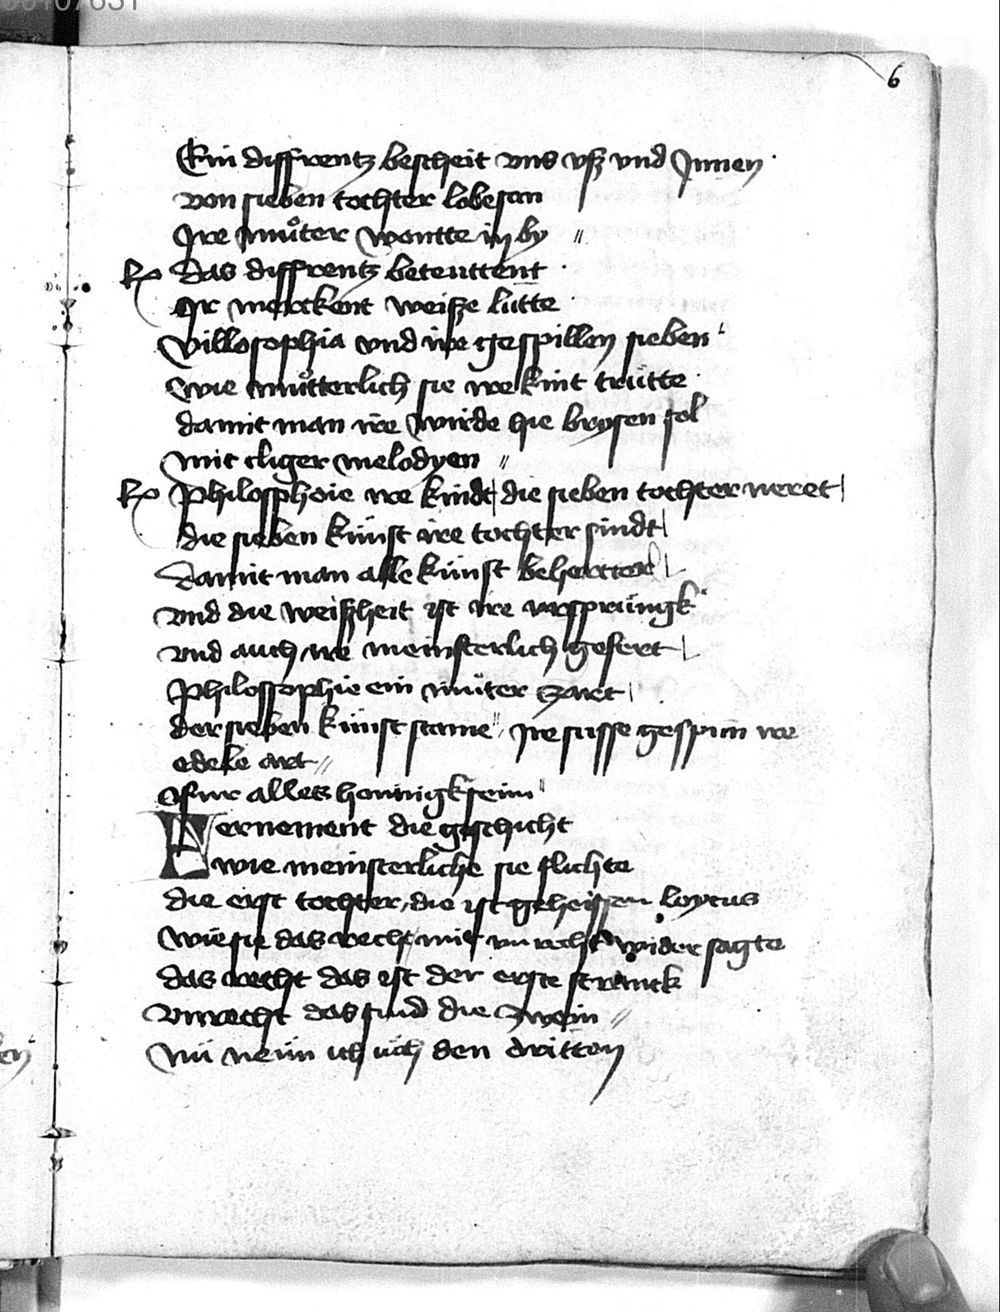 00107631
6
Ein diffrentz bescheit vns vsz vnd Jnnen
von sieben tochter lobesan
Jre muͦter wontte in by //
Rx Das diffrentz betenttent
Jr merckent weisze lutte
Villosophia vnd ire gespillen sieben
wie muͦtterlich sie ire kint trutte
damit man ire wirde hie brysen sol
mit cliger melodyen //
Rx Philosophoie ire kindt | die sieben tochter weret |
die sieben kunst ire tochter sindt |
Damit man alle kunst behertter |
vnd die weiszheit ist ire vrsprungk
vnd auch ire meinsterlich gefert |
Philosophie ein muter zart |
der sieben kunst stame // Jre susse gespun ire
edele art //
Fur alles honnigkseim
Vernement die geschicht
wie meinsterliche sie flichte
die erst tochter, die ist geheissen loycus
wie sie das recht mit vnrecht wider sagte
das recht das ist der erste stranck
Vnrecht das sind die zwein //
Nu nenn ich uch den dritten